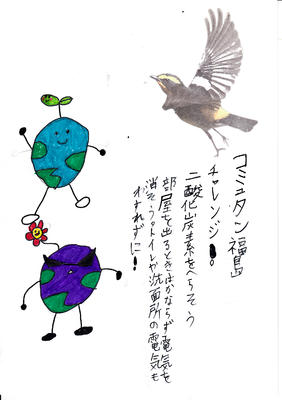 コミュタン福島
チャレンジ!
二酸化炭素をへらそう
部屋を出るときはかならず電気を
消そう。トイレや洗面所の電気も
わすれずに!